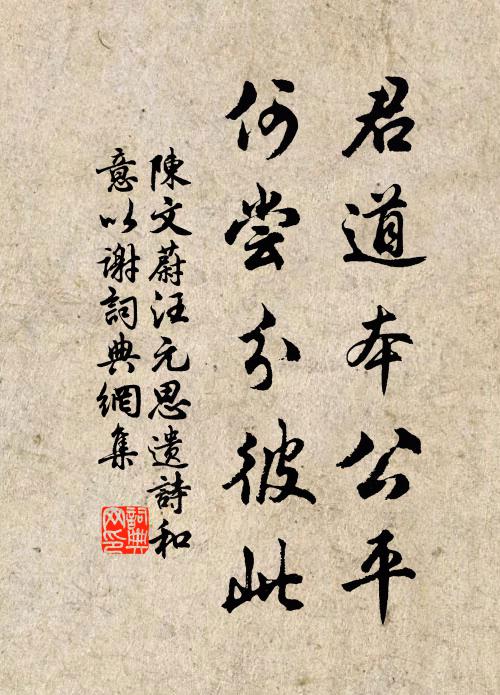 君道本公平
何嘗分彼此
陳文蔚汪元思遺詩和
意以謝詞典網集
詞典網印